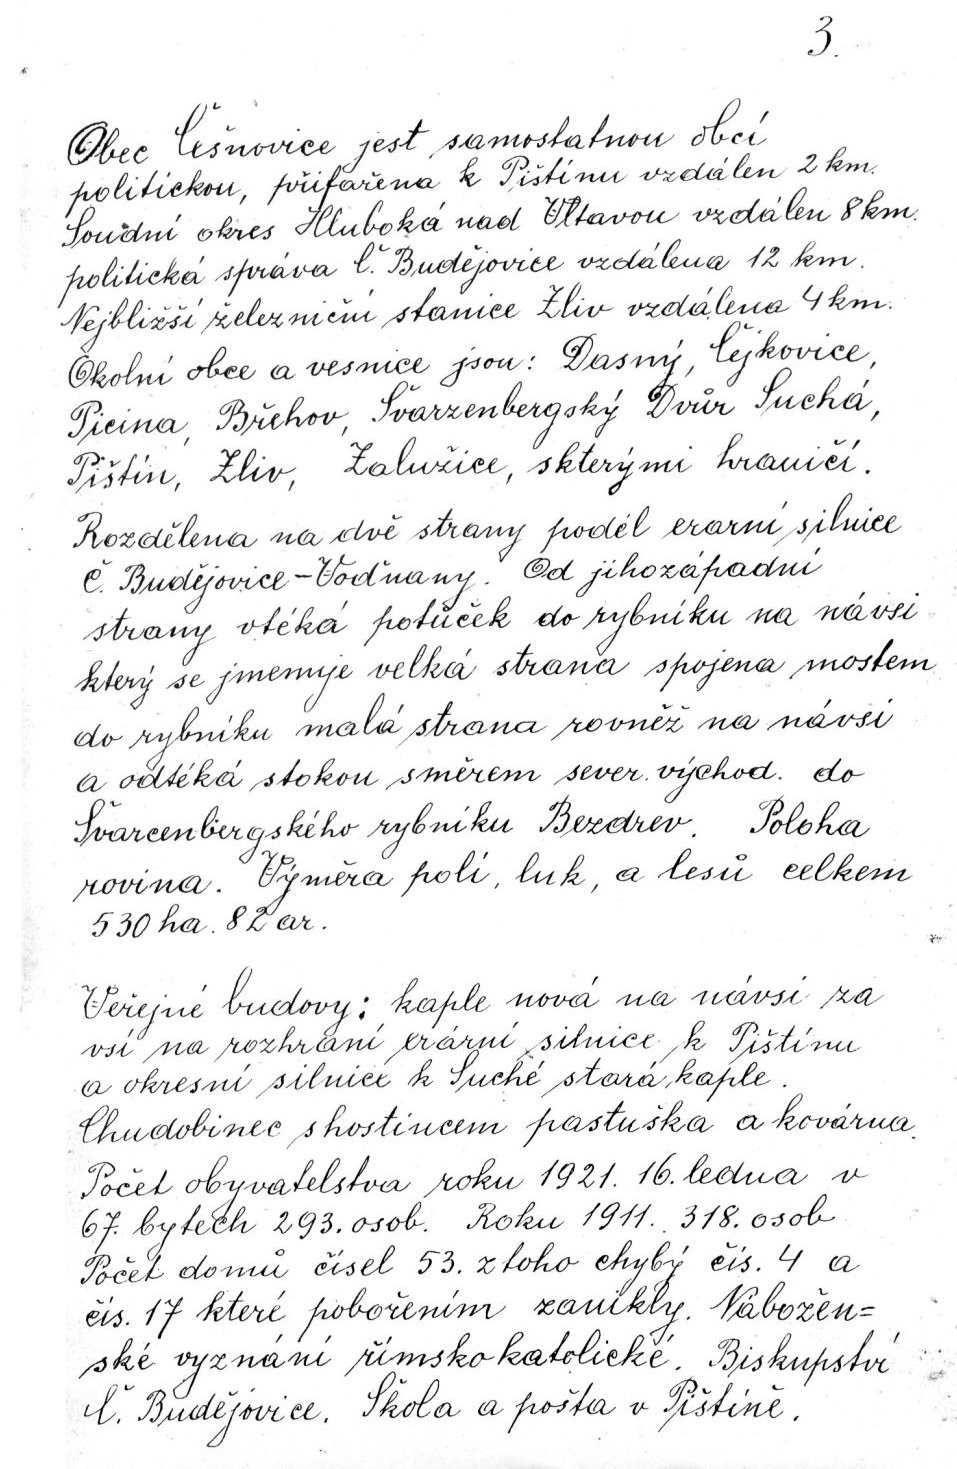 3.
Obec Češnovice jest samostatnou obcí
politickou, přifařena k Pištínu vzdálen 2 km.
Soudní okres Hluboká nad Vltavou vzdálen 8 km.
politická správa Č. Budějovice vzdálena 12 km.
Nejbližší železniční stanice Zliv vzdálena 4 km.
Okolní obce a vesnice jsou: Dasný, Čejkovice,
Picina, Břehov, Švarzenbergský Dvůr Suchá,
Pištín, Zliv, Zalužice, skterými hraničí.
Rozdělena na dvě strany podél erarní silnice
Č. Budějovice-Vodňany. Od jihozápadní
strany vtéká potůček do rybníku na návsi
který se jmenuje velká strana spojena mostem
do rybníku malá strana rovněž na návsi
a odtéká stokou směrem sever. východ. do
Švarcenbergského rybníku Bezdrev. Poloha
rovina. Výměra polí, luk, a lesů celkem
530 ha. 82 ar.
Veřejné budovy: kaple nová na návsi za
vsí na rozhraní erární silnice k Pištínu
a okresní silnice k Suché stará kaple.
Chudobinec shostincem pastuška a kovárna.
Počet obyvatelstva roku 1921. 16. ledna v
67. bytech 293. osob. Roku 1911. 318. osob
Počet domů čísel 53. ztoho chybý čís. 4 a
čís. 17 které pobořením zanikly. Nábožen=
ské vyznání římskokatolické. Biskupství
Č. Budějovice. Škola a pošta v Pištíně.